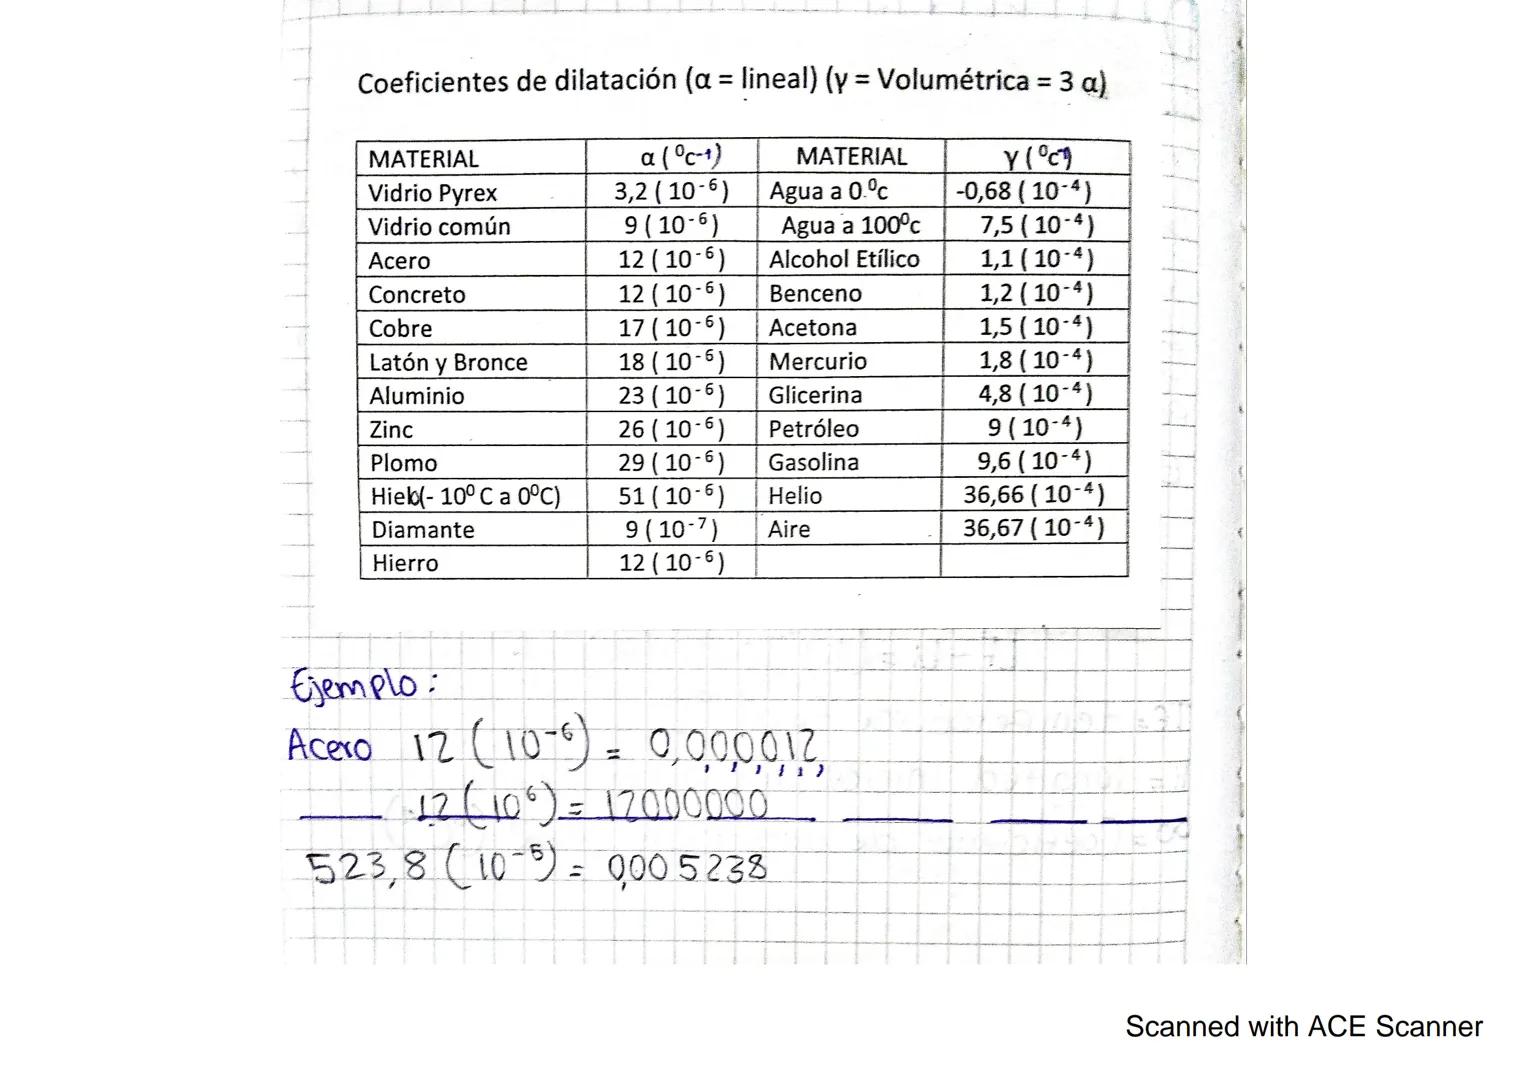 Coeficientes de dilatación (α = lineal) (γ = Volumétrica = 3 α)
MATERIAL α (⁰c-1) MATERIAL γ (⁰c-1)
Vidrio Pyrex 3,2 ( 10⁻⁶) Agua a 0 ⁰c -0,68 ( 10⁻⁴)
Vidrio común 9 ( 10⁻⁶) Agua a 100⁰c 7,5 ( 10⁻⁴)
Acero 12 ( 10⁻⁶) Alcohol Etílico 1,1 ( 10⁻⁴)
Concreto 12 ( 10⁻⁶) Benceno 1,2 ( 10⁻⁴)
Cobre 17 ( 10⁻⁶) Acetona 1,5 ( 10⁻⁴)
Latón y Bronce 18 ( 10⁻⁶) Mercurio 1,8 ( 10⁻⁴)
Aluminio 23 ( 10⁻⁶) Glicerina 4,8 ( 10⁻⁴)
Zinc 26 ( 10⁻⁶) Petróleo 9 ( 10⁻⁴)
Plomo 29 ( 10⁻⁶) Gasolina 9,6 ( 10⁻⁴)
Hielo(- 10⁰ C a 0⁰C) 51 ( 10⁻⁶) Helio 36,66 ( 10⁻⁴)
Diamante 9 ( 10⁻⁷) Aire 36,67 ( 10⁻⁴)
Hierro 12 ( 10⁻⁶)
Ejemplo :
Acero 12 ( 10⁻⁶) = 0,000012
12 ( 10⁶) = 12000000
523,8 ( 10⁻⁵) = 0,005238
Scanned with ACE Scanner